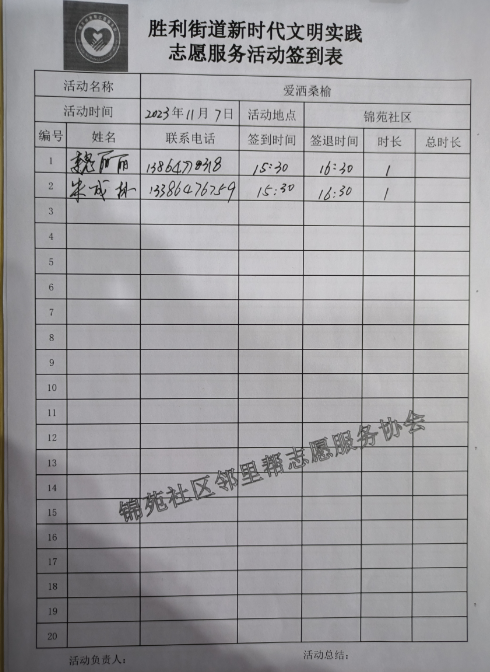 胜利街道新时代文明实践
志愿服务活动签到表
活动名称 爱洒桑榆
活动时间 2023年11月7日 活动地点 锦苑社区
编号 姓名 联系电话 签到时间 签退时间 时长 总时长
1 丽丽 15:30 16:30 1
2 13386476759 15:30 16:30 1
3
4
5
6
7
8
9
10
11
12
13
14
15
16
17
18
19
20
锦苑社区邻里帮志愿服务协会
活动负责人： 活动总结：